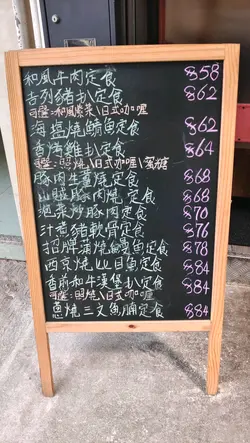 和風牛肉定食 $58
吉列豬扒定食 $62
可選:和風蘿菜\日式咖喱
海塩燒鯖魚定食 $62
香烤雞扒定食 $64
可選:照燒\日式咖喱\蜜糖
豚肉生薑燒定食 $68
山賊豚肉燒定食 $68
泡菜炒豚肉定食 $70
汁煮豬軟骨定食 $76
招牌蒲燒鰻魚定食 $78
西京燒比目魚定食 $84
香煎和牛漢堡扒定食 $84
可選:照燒\日式咖喱
蔥燒三文魚腩定食 $84